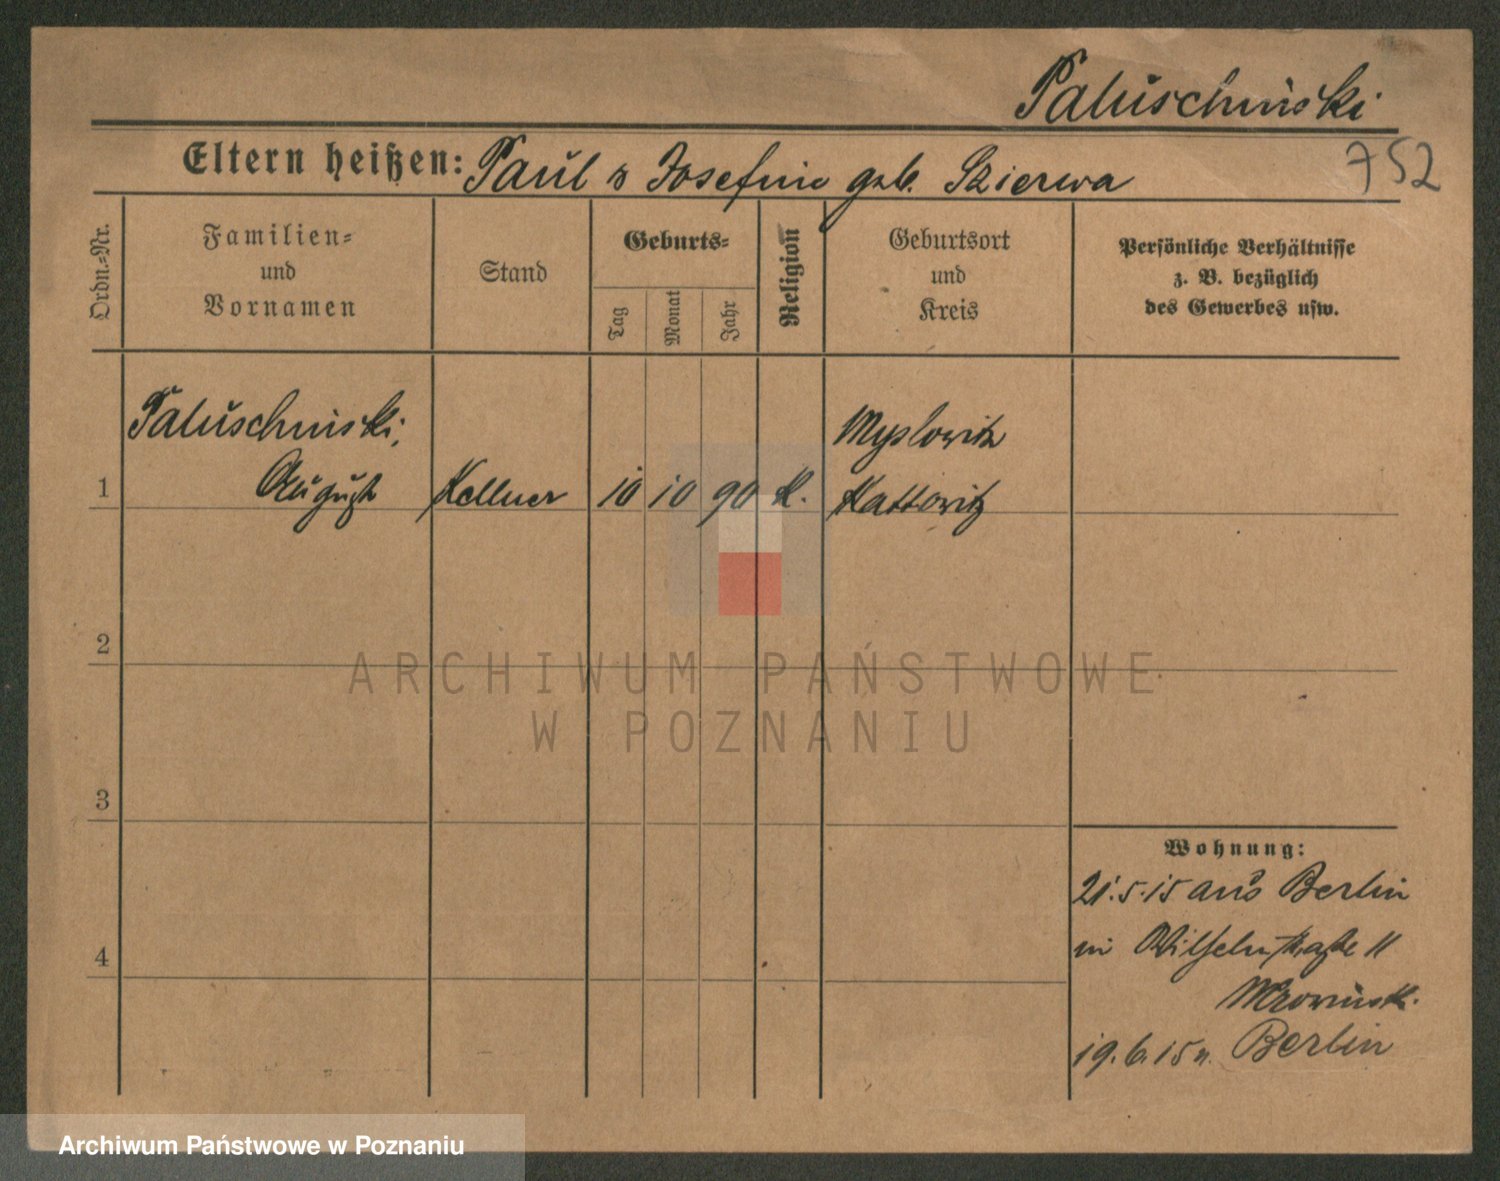 Paluschinski
Eltern heißen: Paul u Josefine geb. Szierwa
752
Ordn.-Nr.
Familien-
und
Vornamen
Stand
Geburts-
Tag
Monat
Jahr
Religion
Geburtsort
und
Kreis
Persönliche Verhältnisse
z. B. bezüglich
des Gewerbes usw.
Paluschinski,
Myslowitz
1 August Kellner 10 10 90 K. Kattowitz
2
ARCHIWUM PAŃSTWOWE
W POZNANIU
3
Wohnung:
21.5.15 aus Berlin
in Wilhelmstraße 11
4
19.6.15 n. Berlin
Archiwum Państwowe w Poznaniu